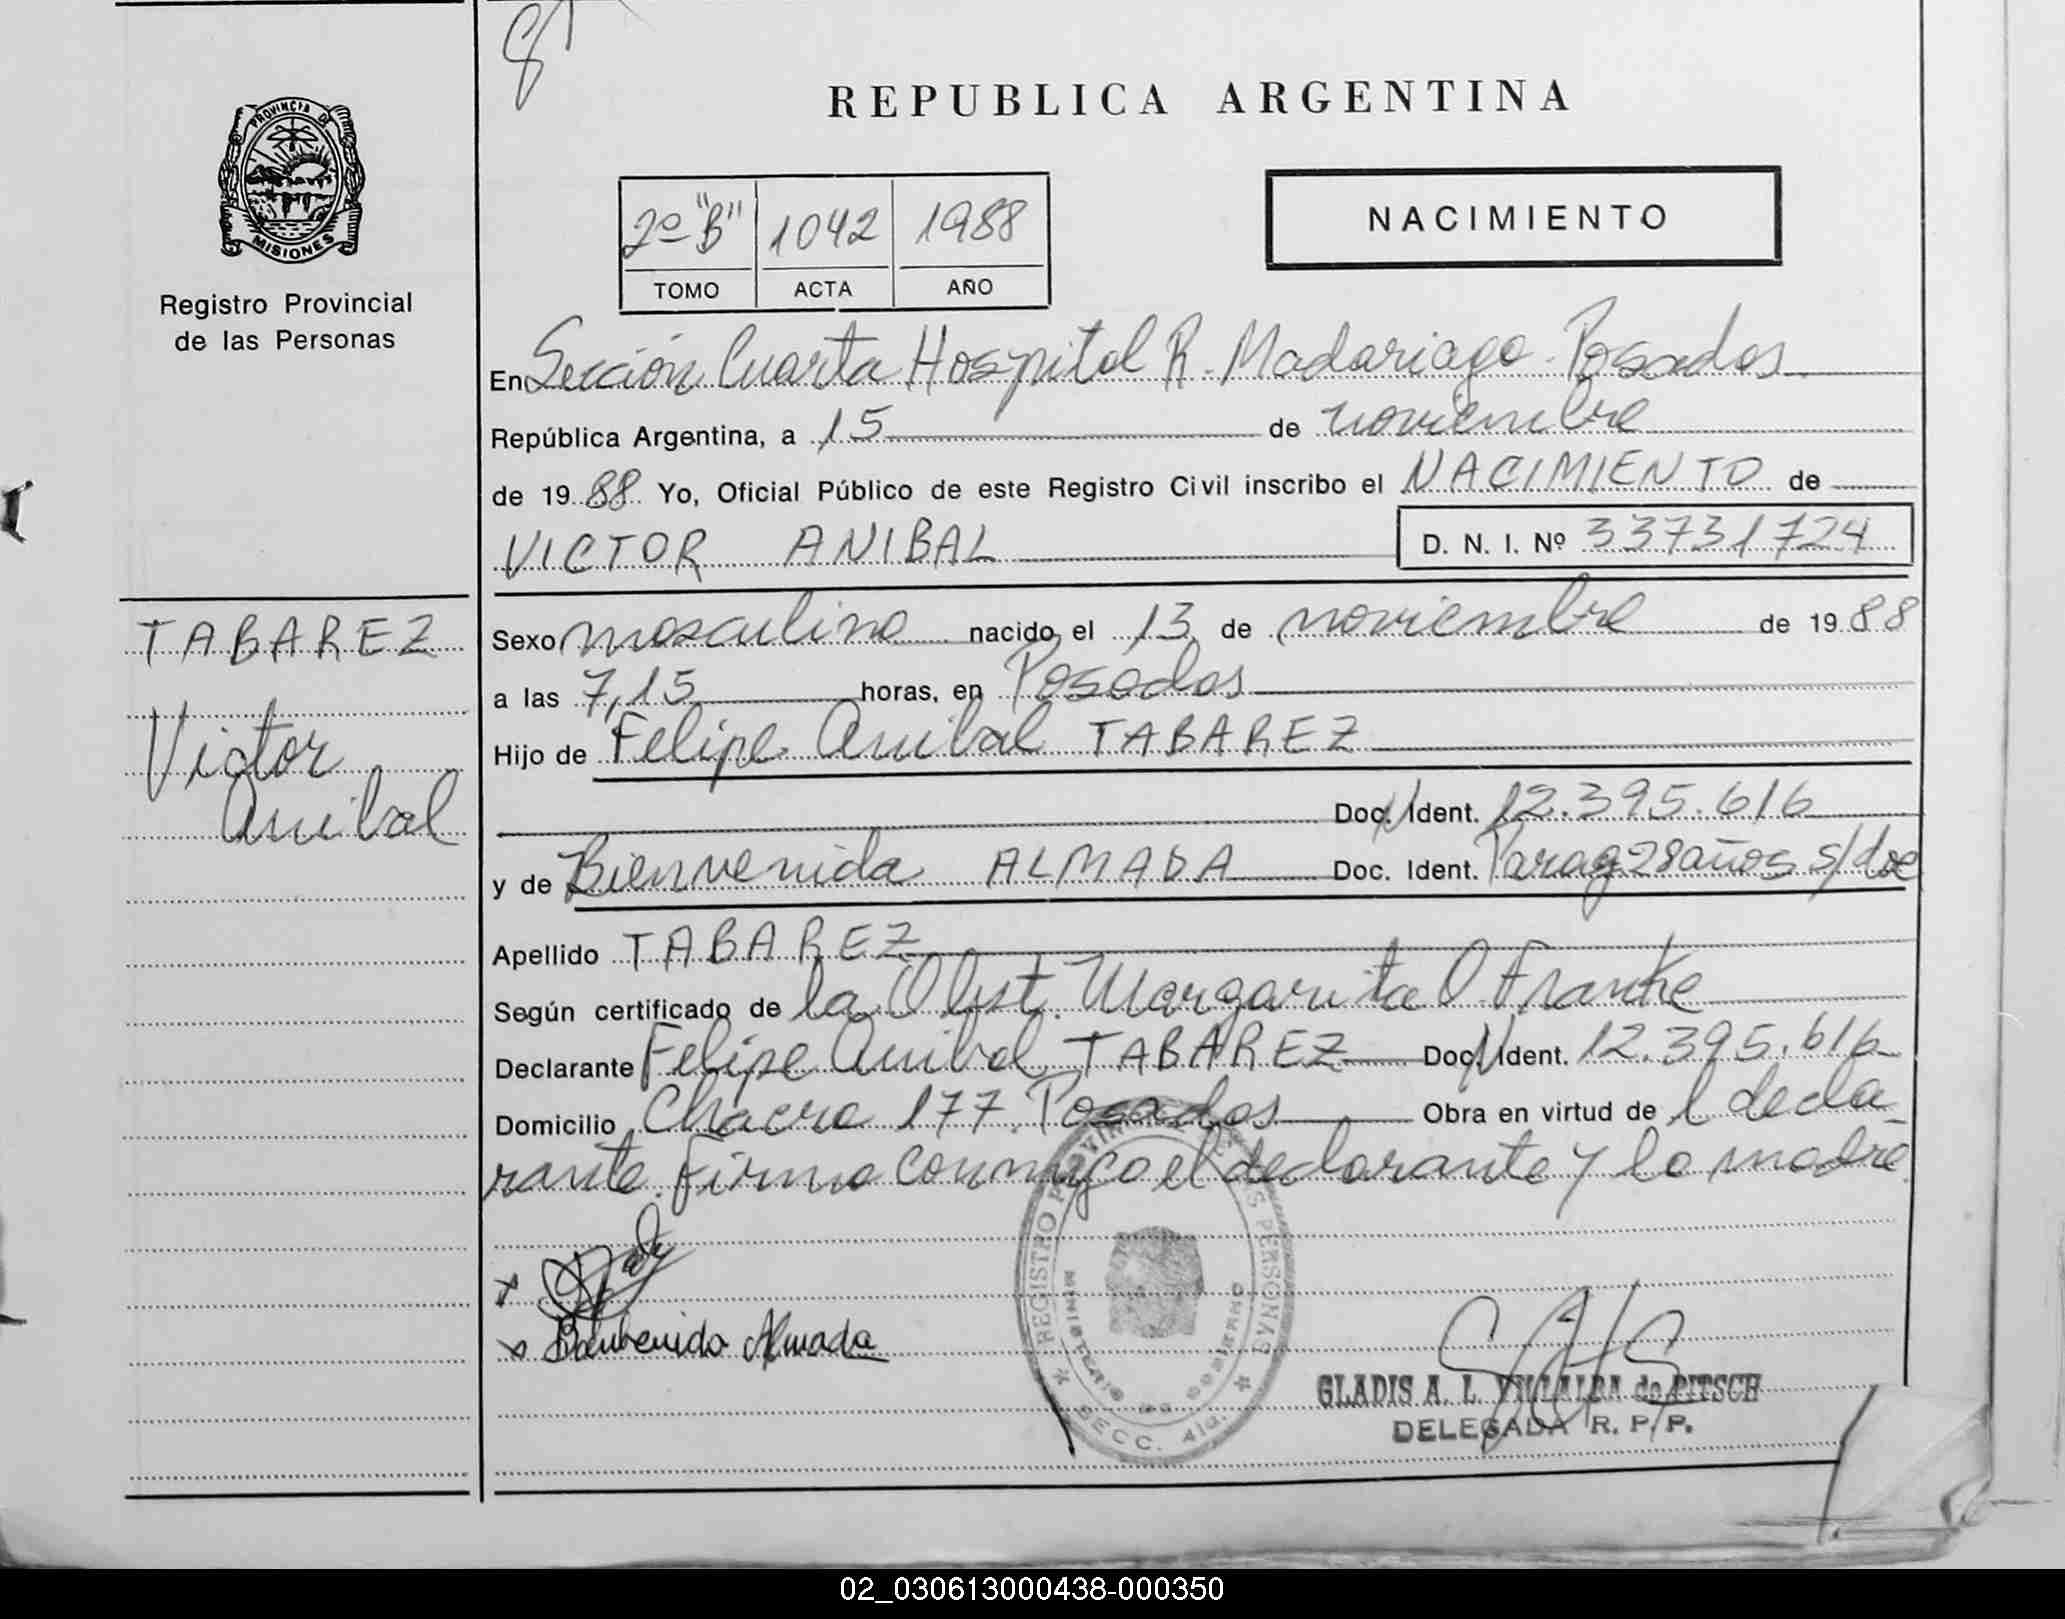 REPUBLICA ARGENTINA
PROVINCIA DE MISIONES
Registro Provincial
de las Personas
2º "B" 1042 1988
TOMO ACTA AÑO
NACIMIENTO
En Sección Cuarta Hospital R. Madariaga - Posadas
República Argentina, a 15 de noviembre
de 1988 Yo, Oficial Público de este Registro Civil inscribo el NACIMIENTO de
VICTOR ANIBAL D. N. I. Nº 33731724
TABAREZ
Victor
Anibal
Sexo masculino nacido el 13 de noviembre de 1988
a las 7,15 horas, en Posadas
Hijo de Felipe Anibal TABAREZ
Doc. N Ident. 12.395.616
y de Bienvenida ALMADA Doc. Ident. Parag 28 años s/doc
Apellido TABAREZ
Según certificado de la Obst. Margarita O. Franke
Declarante Felipe Anibal TABAREZ Doc. N Ident. 12.395.616
Domicilio Chacra 177. Posadas Obra en virtud de l decla
rante. Firma conmigo el declarante y la madre.
Bienbenida Almada
REGISTRO PROVINCIAL DE LAS PERSONAS
MINISTERIO DE GOBIERNO
SECC. 4ta.
GLADIS A. L. VILLALBA de PITSCH
DELEGADA R. P. P.
02_030613000438-000350